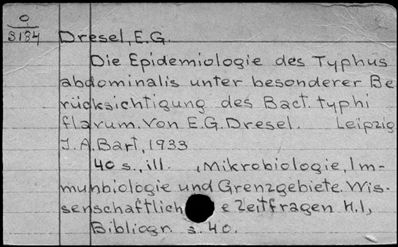 O
3134
Dresel, E.G.
Die Epidemiologie des Typhus
abdominalis unter besonderer Be
rücksichtigung des Bact. typhi
flavum. Von E.G. Dresel. Leipzig
J.A. Bart, 1933
40 s., ill. , Mikrobiologie, Im-
munbiologie und Grenzgebiete. Wis-
senschaftlich e Zeitfragen H.1,
Bibliogn s. 40.